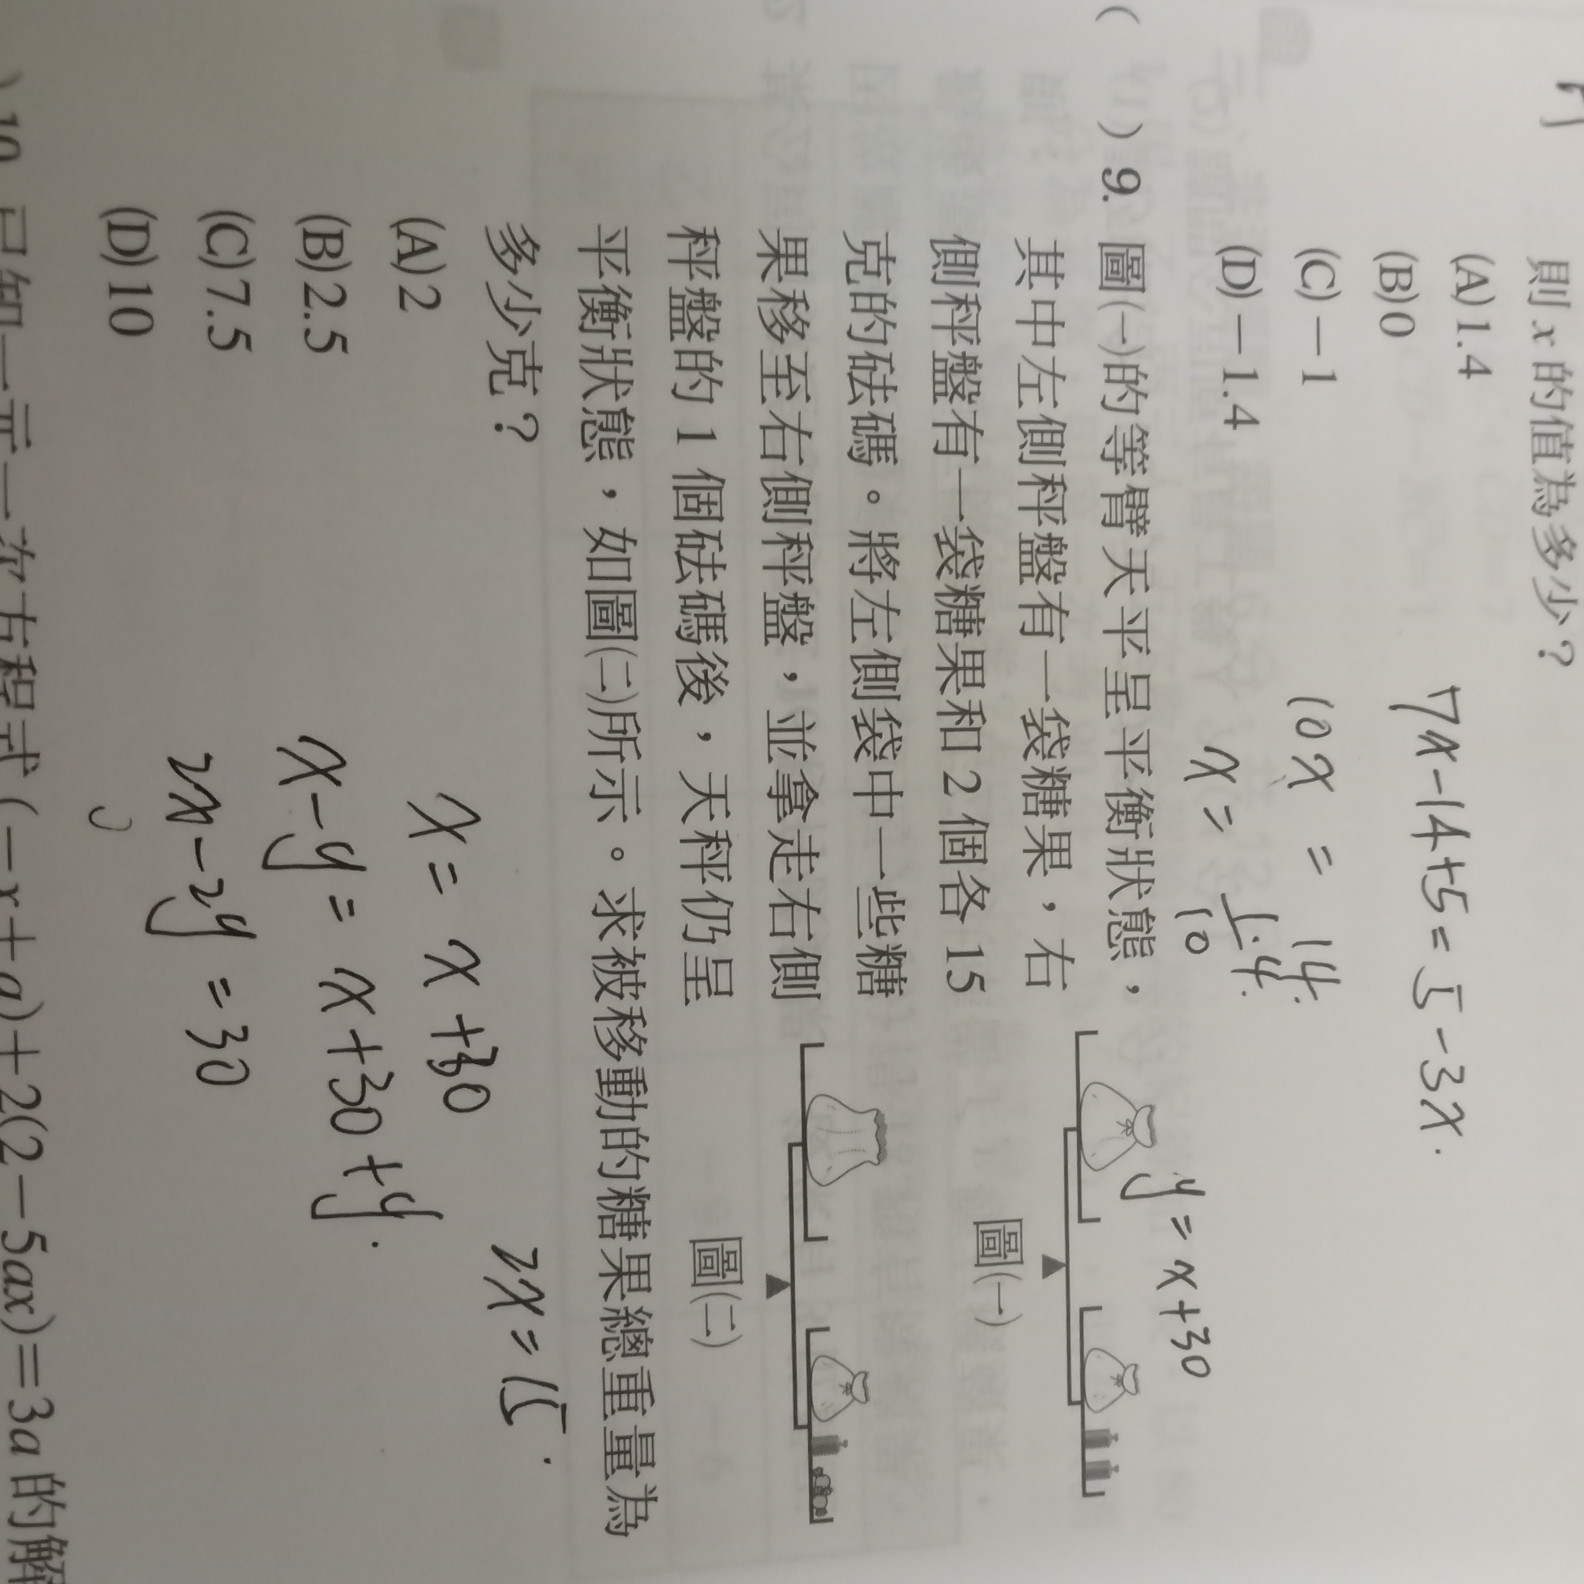 則 x 的值為多少？
(A)1.4
(B)0
(C)－1
(D)－1.4
7x-14+5=5-3x.
10x = 14.
x = 1.4
10
( ) 9. 圖(一)的等臂天平呈平衡狀態，
其中左側秤盤有一袋糖果，右
側秤盤有一袋糖果和 2 個各 15
克的砝碼。將左側袋中一些糖
果移至右側秤盤，並拿走右側
秤盤的 1 個砝碼後，天秤仍呈
平衡狀態，如圖(二)所示。求被移動的糖果總重量為
多少克？
(A)2
(B)2.5
(C)7.5
(D)10
y = x+30
圖(一)
圖(二)
2x = 15.
x = x+30
x-y = x+30+y.
2x-2y = 30
)10. 已知一元一次方程式 (－x＋a)＋2(2－5ax)＝3a 的解